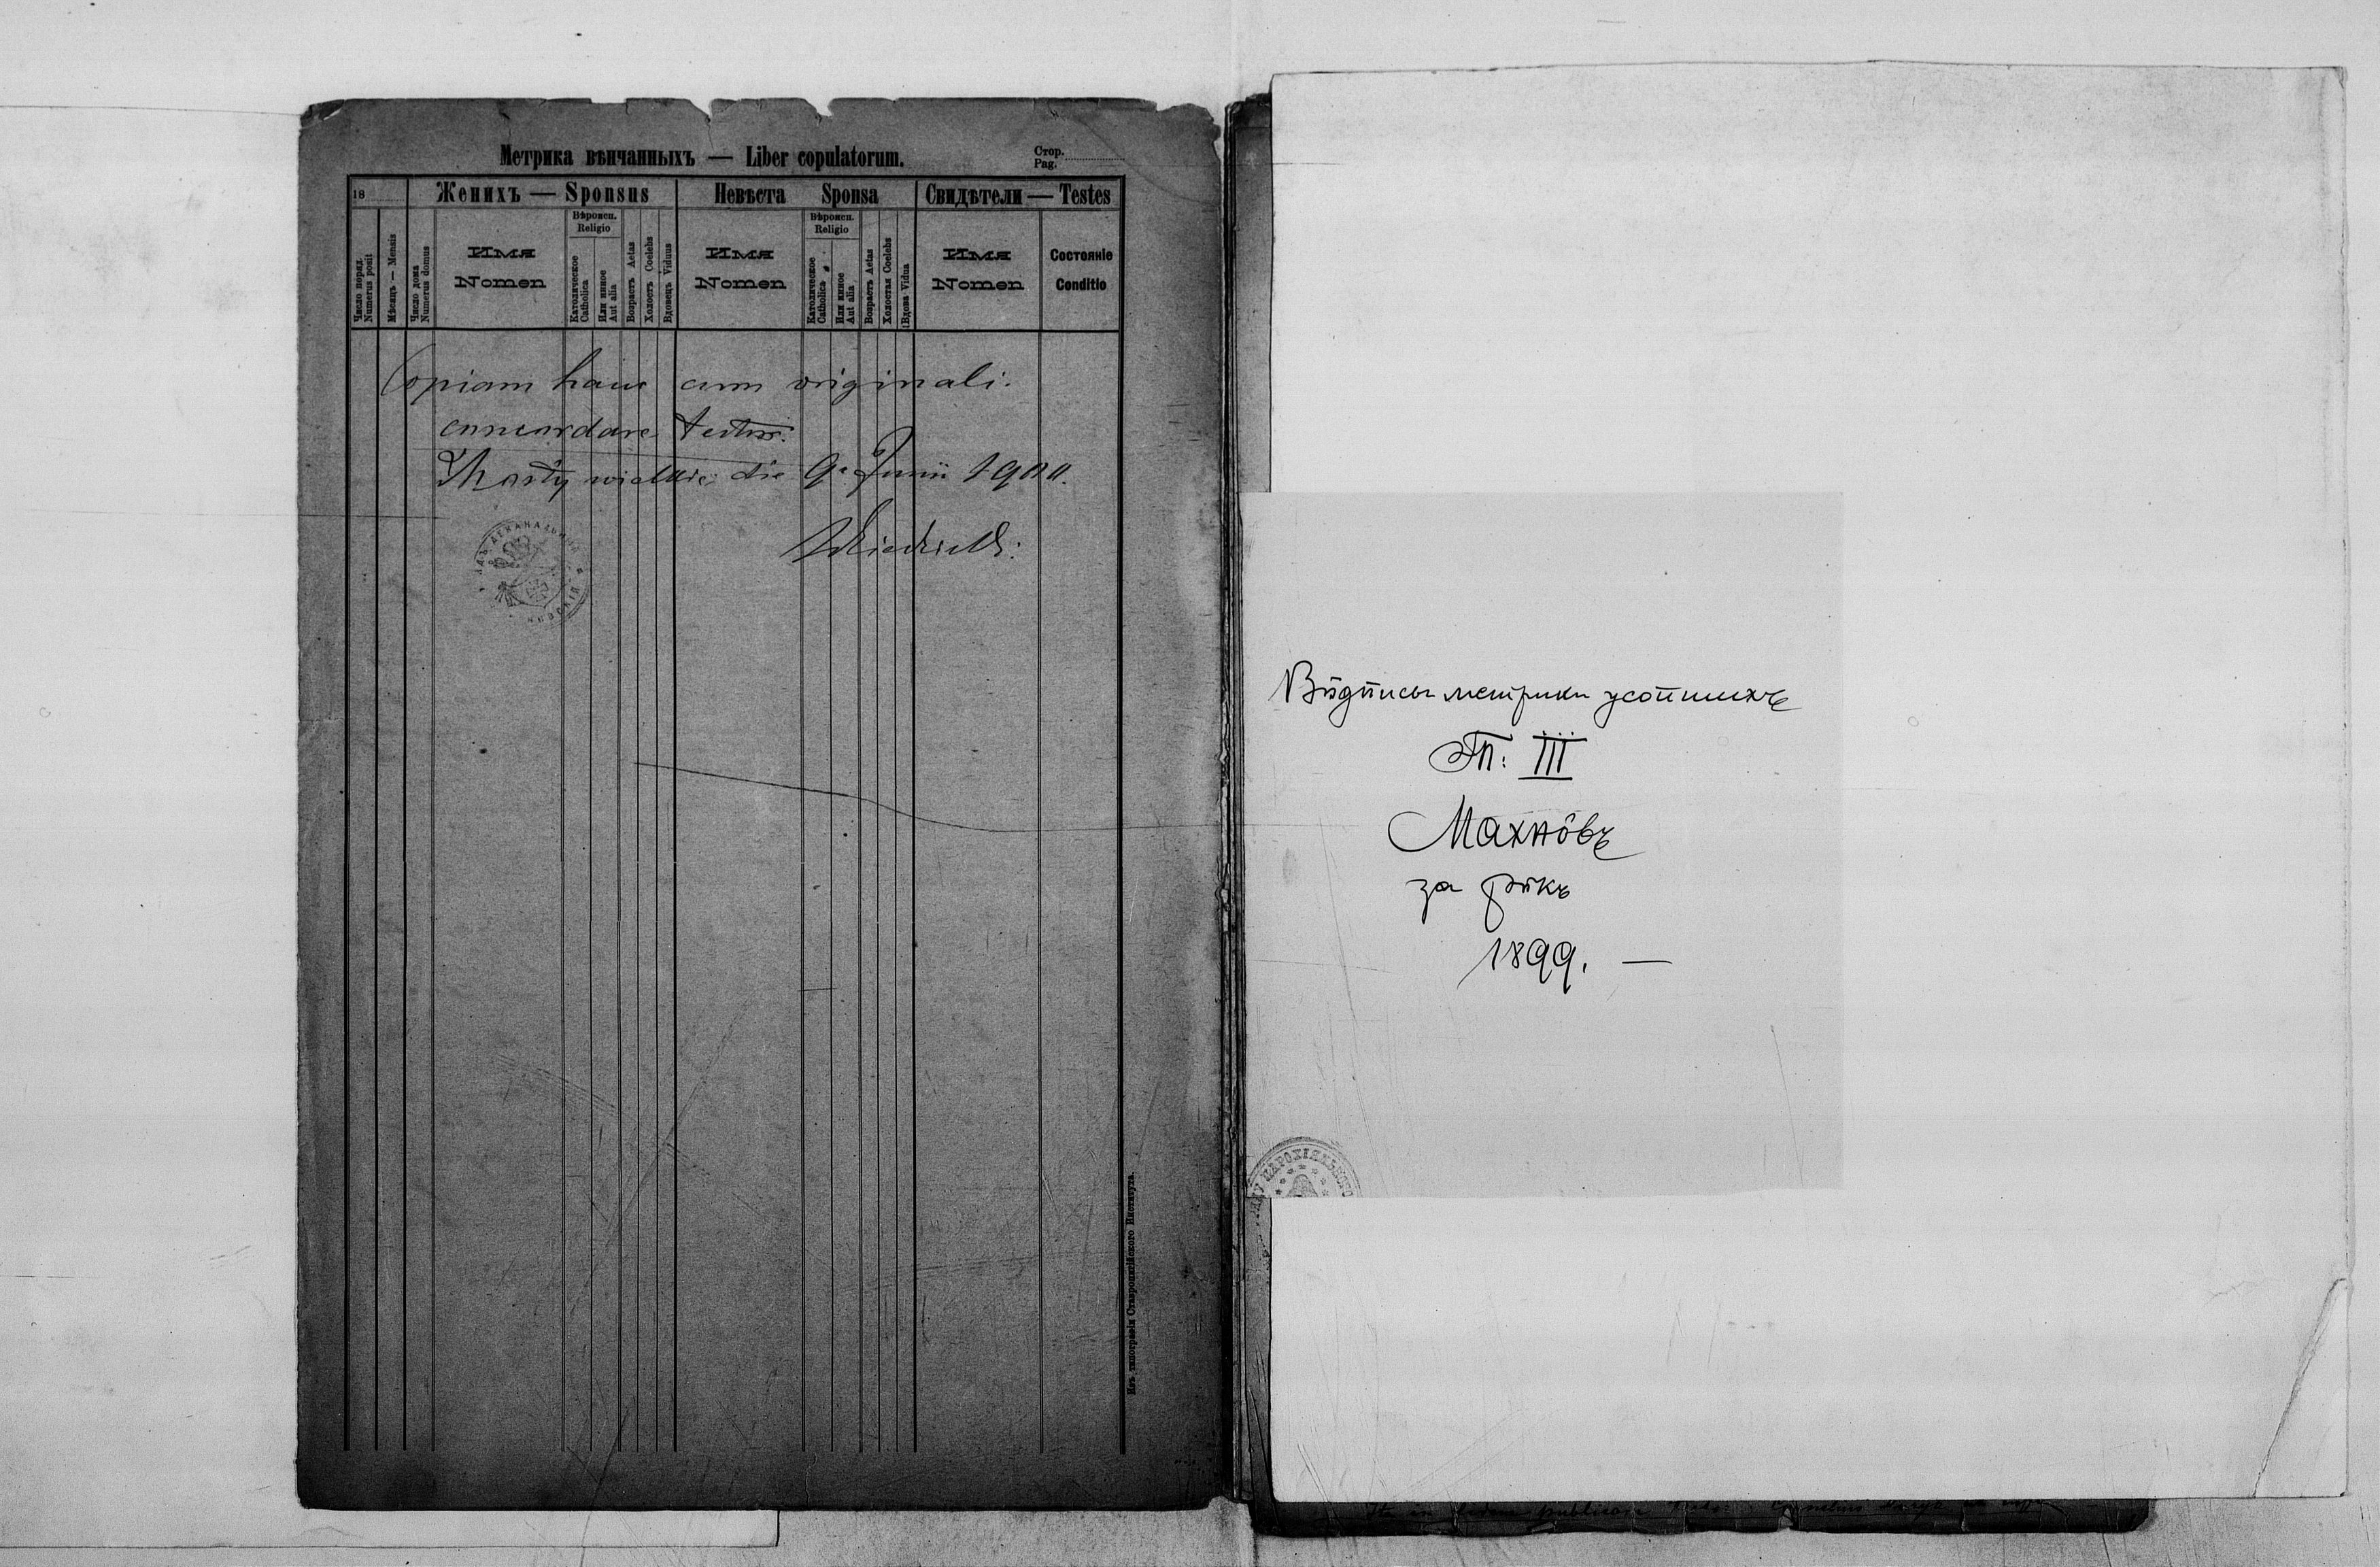 Метрика вѣнчанныхъ — Liber copulatorum.
Стор.
Pag.
18
Женихъ — Sponsus
Невѣста Sponsa
Свидѣтели — Testes
Число поряд.
Numerus posit
Мѣсяцъ — Mensis
Число дома
Numerus domus
Имя
Nomen
Вѣроисп.
Religio
Католическое
Catholica
Или иное
Aut alia
Возрастъ Aetas
Холостъ Coelebs
Вдовецъ Viduus
Имя
Nomen
Вѣроисп.
Religio
Католическое
Catholica
Или иное
Aut alia
Возрастъ Aetas
Холостая Coelebs
Вдова Vidua
Имя
Nomen
Состояніе
Conditio
Copiam hanc cum originali
concordare testor.
Mosty wielkie die 9a Junii 1900.
Изъ типографіи Ставропигійского Института.
Вôдписъ метрики усопшихъ
Тп: III
Махнôвъ
за рôкъ
1899. —
ПАРОХІЯЛЬНОГО